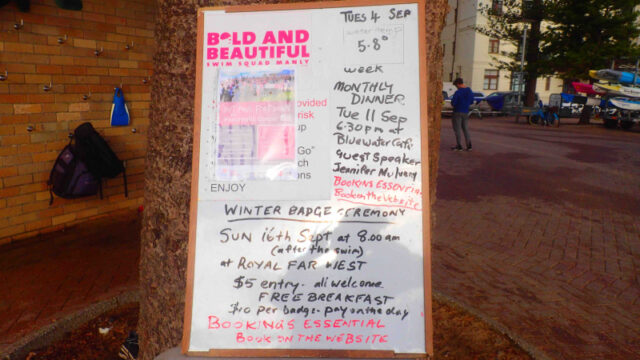 BOLD AND
BEAUTIFUL
SWIM SQUAD MANLY
TUES 4 SEP
water temp
5.8°
week
MONTHLY
DINNER
Tue 11 Sep
6.30pm at
Bluewater Cafe
Guest Speaker
Jennifer
BOOKING ESSENTIAL
Book on the Website
ovided
risk
up
Go"
ch
ons
ENJOY
WINTER BADGE CEREMONY
SUN 16th Sept at 8.00 am
(after the swim)
at ROYAL FAR WEST
$5 entry - all welcome
FREE BREAKFAST
$10 per badge - pay on the day
BOOKINGS ESSENTIAL
BOOK ON THE WEBSITE